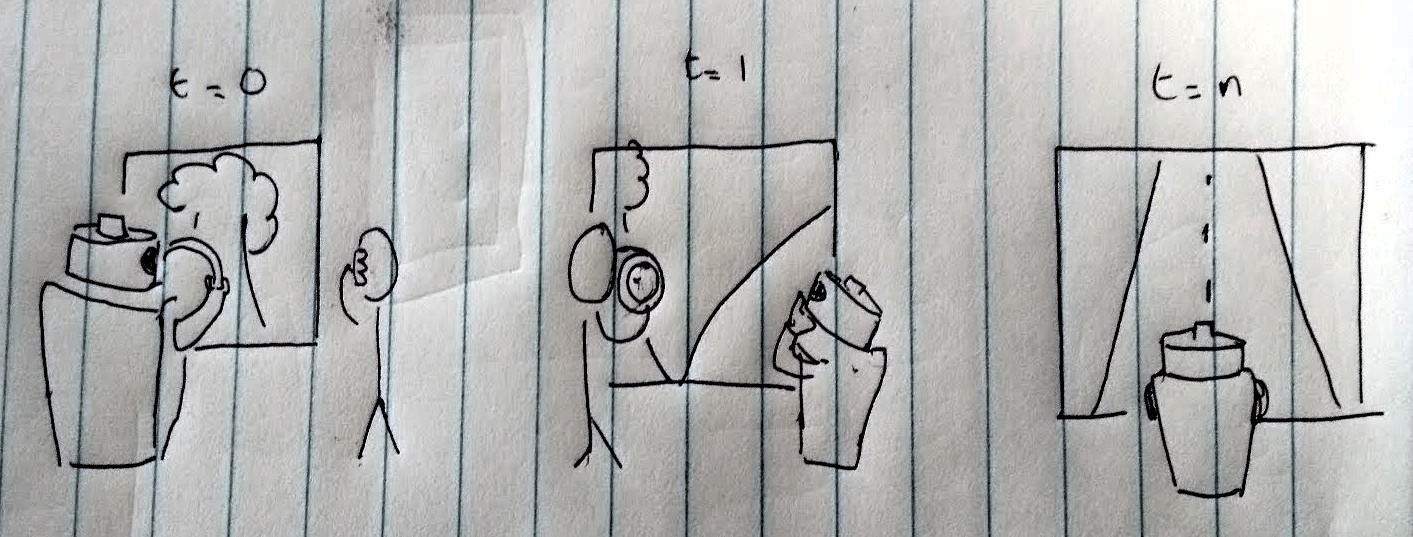 t = 0
t = 1
t = n